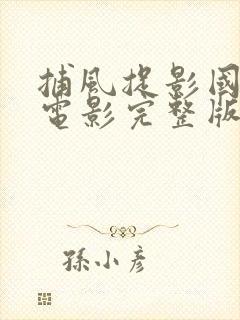 捕風捉影國
電影完整版
孫小彥